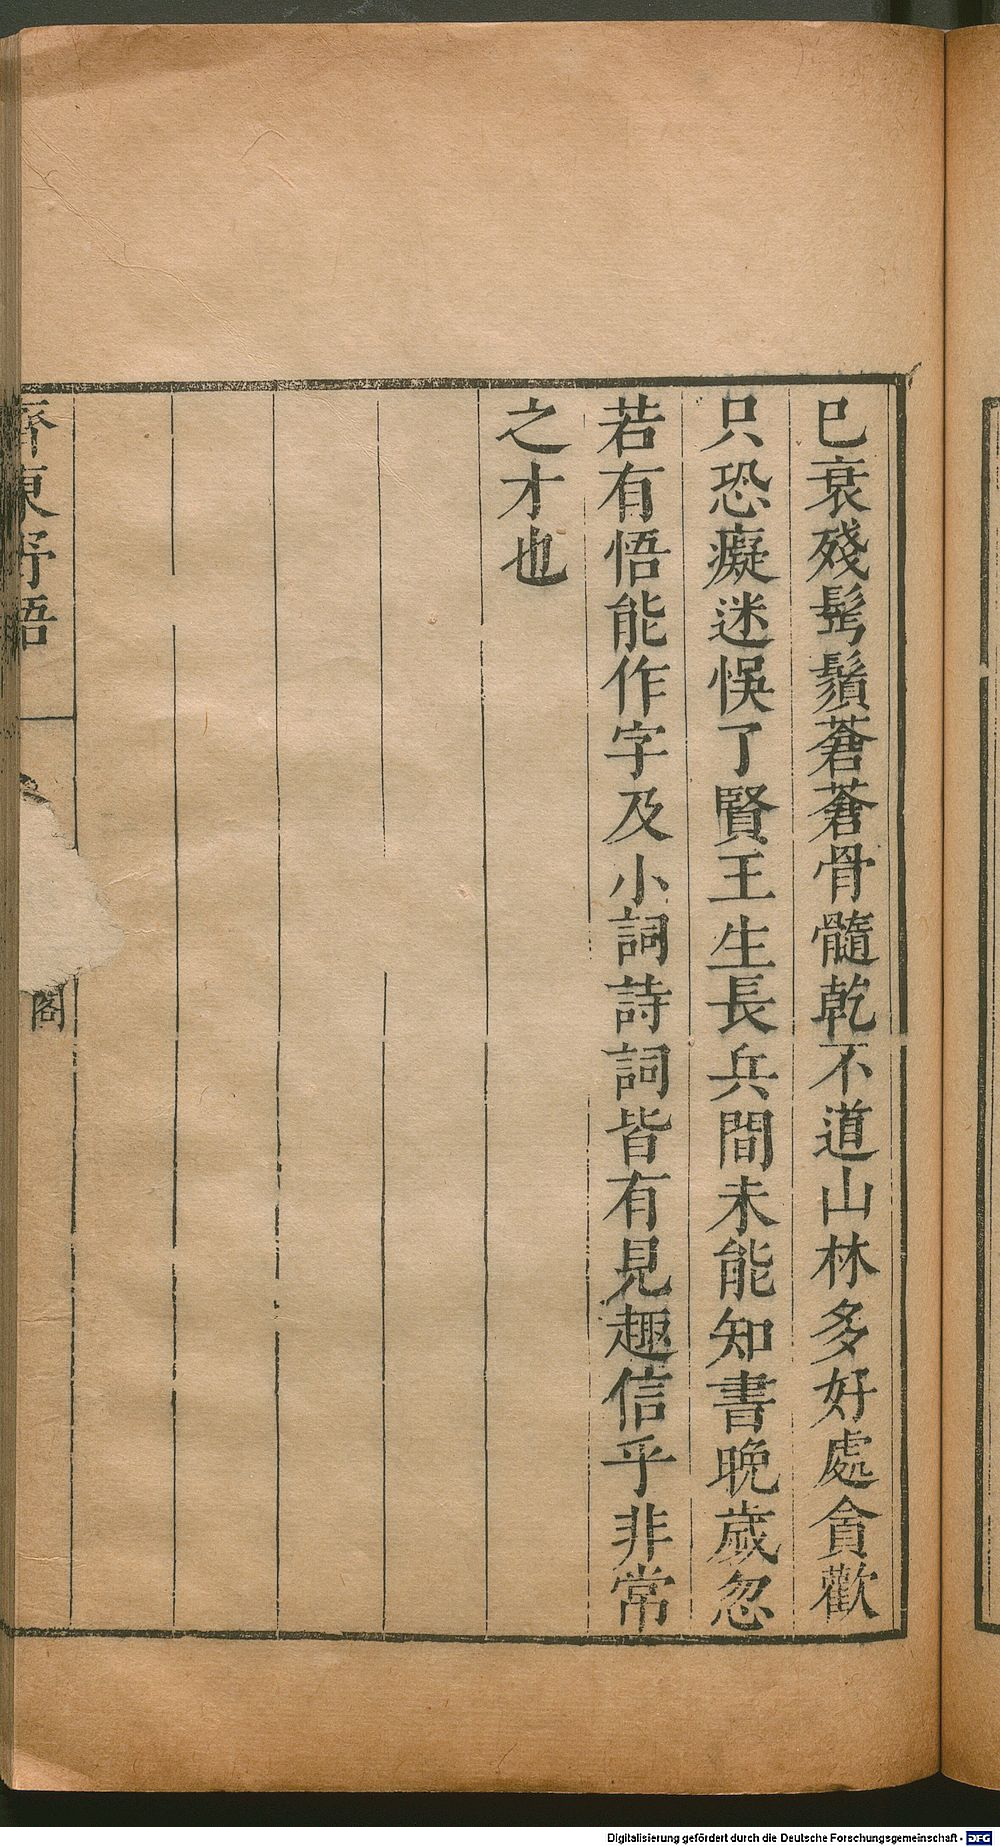 已衰殘髩鬚蒼蒼骨髓乾不道山林多好處貪歡
只恐癡迷悞了賢王生長兵間未能知書晚歲忽
若有悟能作字及小詞詩詞皆有見趣信乎非常
之才也
齊東野語
閣
Digitalisierung gefördert durch die Deutsche Forschungsgemeinschaft - DFG